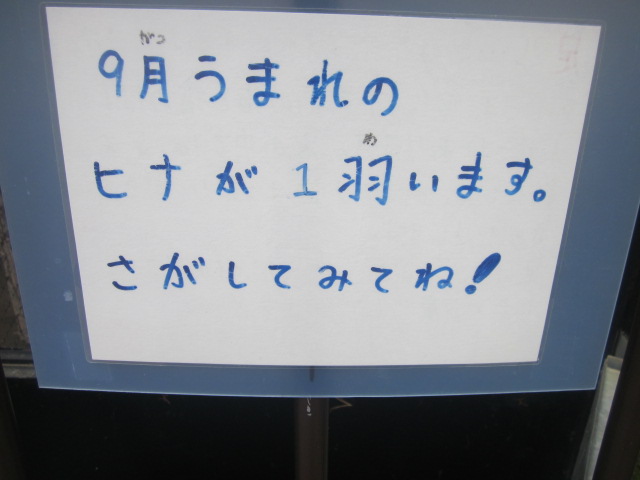 がつ
9月うまれの
わ
ヒナが1羽います。
さがしてみてね!